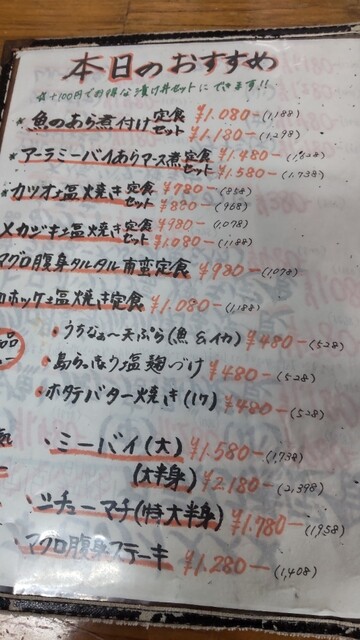 本日のおすすめ
☆+100円でお得な漬け丼セットにできます!!
*魚のあら煮付け定食 ¥1.080-(1,188)
セット ¥1.180-(1,298)
*アーラミーバイありマース煮定食 ¥1.480-(1,628)
セット ¥1.580-(1,738)
*カツオ塩焼き定食 ¥780-(858)
セット ¥880-(968)
メカジキ塩焼き定食 ¥980-(1,078)
セット ¥1.080-(1,188)
マグロ腹身タルタル南蛮定食 ¥980-(1,078)
ホッケ塩焼き定食 ¥1.080-(1,188)
品
・うちなぁ〜天ぷら(魚&イカ) ¥480-(528)
・島らっきょう塩麹づけ ¥480-(528)
・ホタテバター焼き(1ケ) ¥480-(528)
・ミーバイ(大) ¥1.580-(1,738)
(大半身) ¥2.180-(2,398)
・シチューマチ(特大半身) ¥1.780-(1,958)
・マグロ腹身ステーキ ¥1.280-(1,408)